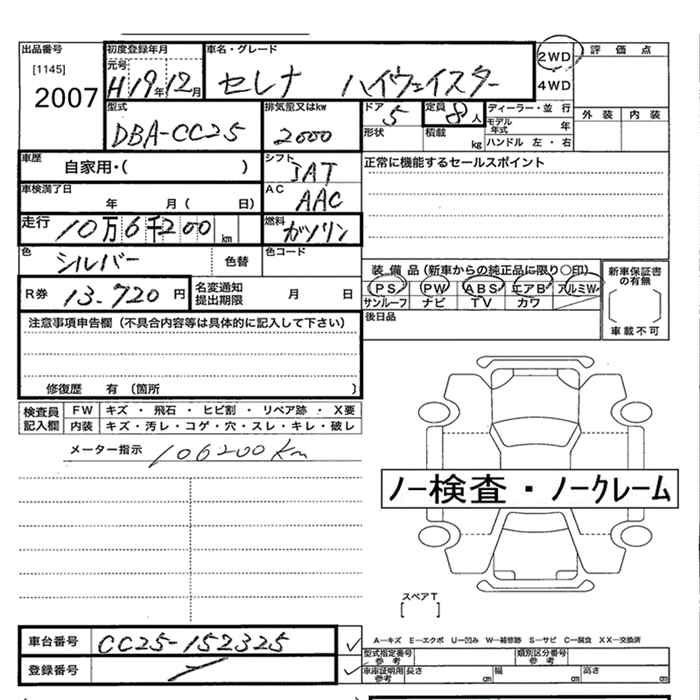 出品番号 初度登録年月 車名・グレード 評価点
[1145] 元号 2WD
2007 H19年12月 セレナ ハイウェイスター 4WD
型式 排気量又はkw ドア 定員 ディーラー・並行 外装 内装
DBA-CC25 2000 5 8人 モデル年式 年
形状 積載 kg ハンドル 左・右
車歴 自家用・( ) シフト IAT 正常に機能するセールスポイント
車検満了日 年 月( 日) AC AAC
走行 10万6千200km 燃料 ガソリン
色 シルバー 色替 色コード
装備品(新車からの純正品に限り○印) 新車保証書の有無
R券 13.720円 名変通知提出期限 月 日 PS PW ABS エアB アルミW
サンルーフ ナビ TV カワ 車載不可
注意事項申告欄(不具合内容等は具体的に記入して下さい) 後日品
修復歴 有 (箇所 )
検査員記入欄 FW キズ・飛石・ヒビ割・リペア跡・X要
内装 キズ・汚レ・コゲ・穴・スレ・キレ・破レ
メーター指示 106200Km
ノー検査・ノークレーム
スペアT
[ ]
車台番号 CC25-152325 A―キズ E―エクボ U―凹み W―補修跡 S―サビ C―腐食 XX―交換済
型式指定番号 参考 類別区分番号 参考
登録番号 車庫証明用参考 長さ cm 幅 cm 高さ cm